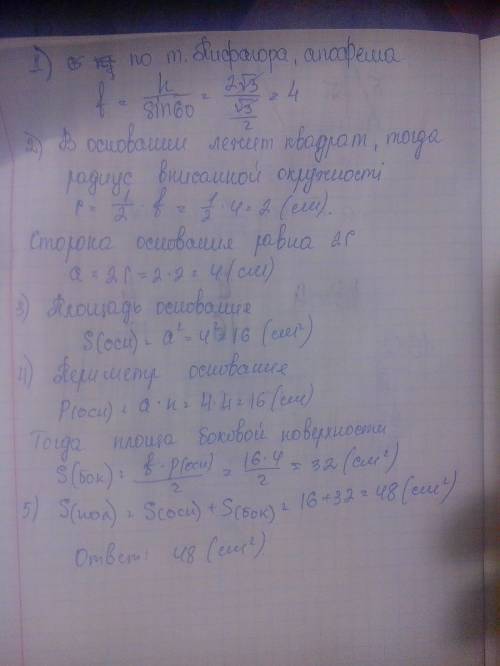 1) по т. Пифагора, апофема
f = h/sin60 = 2√3/(√3/2) = 4
2) В основании лежит квадрат, тогда
радиус вписаной окружності
r = 1/2 · f = 1/2 · 4 = 2 (см).
Сторона основания равна 2r
a = 2r = 2·2 = 4 (см)
3) Площадь основания
S(осн) = a² = 4² = 16 (см²)
4) Периметр основания
P(осн) = a·н = 4·4 = 16 (см)
Тогда площа боковой поверхности
S(бок) = f·P(осн)/2 = 16·4/2 = 32 (см²)
5) S(пол) = S(осн) + S(бок) = 16+32 = 48 (см²)
Ответ: 48 (см²)